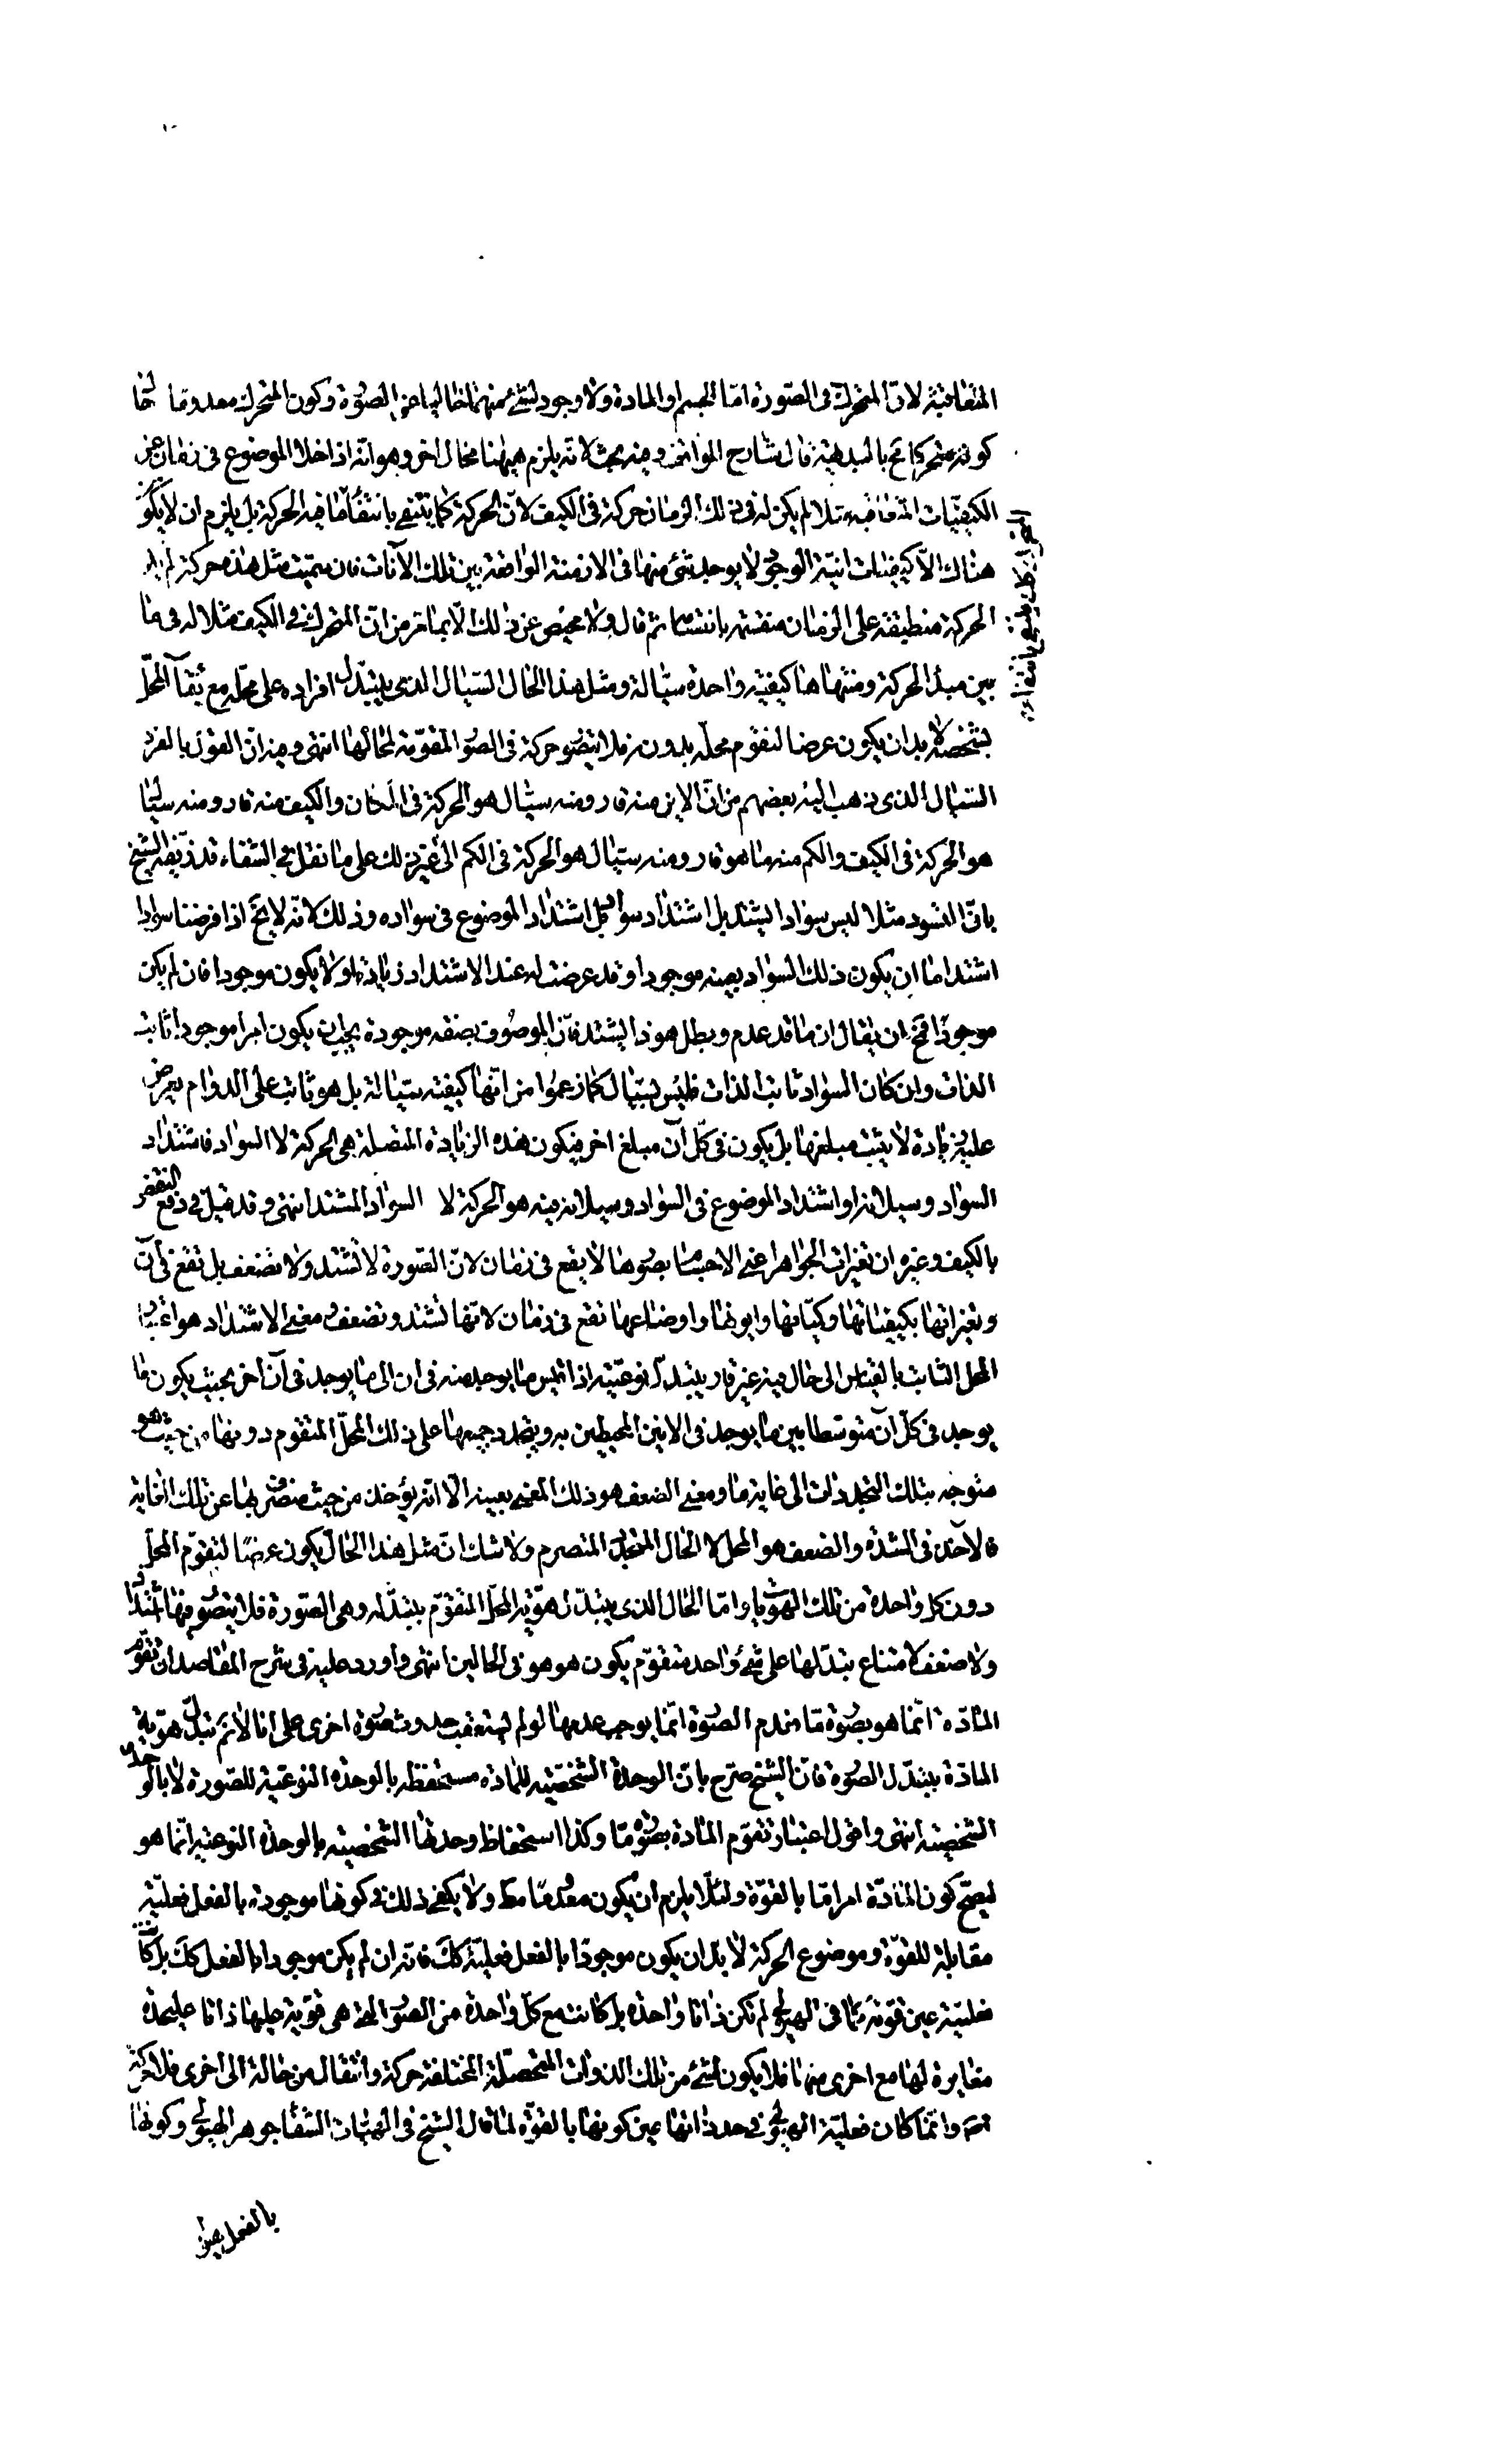 المتعاقبة لان المتحرك فى الصورة اما الجسم او المادة ولا وجود لشئ منهما خاليا عن الصورة وكون المتحرك معدوما حال
كونه متحركا مح بالبديهة قال شارح المواقف وفيه بحث لانه يلزم هيهنا محال اخر وهو انه اذا خلا الموضوع فى زمان عن
الكيفيات المتعاقبة مثلا لم يكن له فى ذلك الزمان حركة فى الكيف لان الحركة كما ينتفى بانتفاء ما فيه الحركة بل يلزم ان لا يكون
هناك الا كيفيات انية الوجود لا يوجد شئ منها فى الازمنة الواقعة بين تلك الآنات فان سميت مثل هذه حركة لم يكن
الحركة منطبقة على الزمان منقسمة بانقسامه ثم قال ولا محيص عن ذلك الا بما مر من ان المتحرك فى الكيف مثلا له فى ما
بين مبدأ الحركة ومنتهاها كيفية واحدة سيالة ومثل هذا الحال السيال الذى يتبدل افراده على محله مع بقاء المحل
بشخصه لا بد ان يكون عرضا لتقوم محله بدونه فلا يتصور حركة فى الصور المقومة لمحالها انتهى وفيه ان القول بالفرد
السيال الذى ذهب اليه بعضهم من ان الاين منه قار ومنه سيال هو الحركة فى المكان والكيف منه قار ومنه سيال
هو الحركة فى الكيف والكم منه ما هو قار ومنه سيال هو الحركة فى الكم الى غير ذلك على ما نقل فى الشفاء قد زيفه الشيخ
بان التسود مثلا ليس سوادا يشتد بل اشتداد سواد بل اشتداد الموضوع فى سواده وذلك لانه لا يخ اذا فرضنا سوادا
اشتد اما ان يكون ذلك السواد بعينه موجودا وقد عرضت له عند الاشتداد زيادة او لا يكون موجودا فان لم يكن
موجودا فمح ان يقال ان ما قد عدم وبطل هو ذا يشتد فان الموصوف بصفة موجودة يجب ان يكون امرا موجودا ثابت
الذات وان كان السواد ثابت الذات فليس بسيال كما زعموا من انها كيفية سيالة بل هو ثابت على الدوام يعرض
عليه زيادة لا يثبت مبلغها بل يكون فى كل آن مبلغ اخر فيكون هذه الزيادة المتصلة هى الحركة لا السواد فاشتداد
السواد وسيلانه او اشتداد الموضوع فى السواد وسيلانه فيه هو الحركة لا السواد المشتد انتهى وقد قيل فى دفع النقض
بالكيف وغيره ان تغيرات الجواهر اعنى الاجسام بصورها لا يقع فى زمان لان الصورة لا تشتد ولا تضعف بل تقع فى آن
وتغيراتها بكيفياتها وكمياتها وايونها واوضاعها تقع فى زمان لانها تشتد وتضعف ومعنى الاشتداد هو اعتبار
المحل الثابت بالقياس الى حال فيه غير قار يتبدل نوعيته اذا قيس ما يوجد منه فى ان الى ما يوجد فى آن آخر بحيث يكون ما
يوجد فى كل آن متوسطا بين ما يوجد فى الانين المحيطين به ويتجدد جميعها على ذلك المحل المتقوم دونها من حيث هو
متوجه بتلك التجددات الى غاية ما ومعنى الضعف هو ذلك المعنى بعينه الا انه يؤخذ من حيث منصرف بها عن تلك الغاية
فالآخذ فى الشدة والضعف هو المحل لا الحال المتجدد المتصرم ولا شك ان مثل هذا الحال يكون عرضا لتقوم المحل
دون كل واحدة من تلك الهويات واما الحال الذى يتبدل هوية المحل المتقوم بتبدله وهى الصورة فلا يتصور فيها اشتداد
ولا ضعف لامتناع تبدلها على شئ واحد متقوم يكون هو هو فى الحالين انتهى واورد عليه فى شرح المقاصد ان تقوم
المادة انما هو بصورة ما فعدم الصورة انما يوجب عدمها لو لم يستعقب حدوث صورة اخرى على انا لا نم تبدل هوية
المادة بتبدل الصورة فان الشيخ صرح بان الوحدة الشخصية للمادة مستحفظة بالوحدة النوعية للصورة لا بالوحدة
الشخصية انتهى واقول اعتبار تقوم المادة بصورة ما وكذا استحفاظ وحدتها الشخصية بالوحدة النوعية انما هو
ليصح كون المادة امرا ما بالقوة ولئلا يلزم ان يكون معدوما مط ولا يكفى ذلك فى كونها موجودة بالفعل فعلية
مقابلة للقوة وموضوع الحركة لا بد ان يكون موجودا بالفعل فعلية كك فانه ان لم يكن موجودا بالفعل كك بل كانت
فعليته عين قوته كما فى الهيولى لم تكن ذاتا واحدة بل كانت مع كل واحدة من الصور التى هى قوية عليها ذاتا عليحدة
مغايرة لها مع اخرى منها فلا يكون لشئ من تلك الذوات المتحصلة المختلفة حركة وانتقال من حالة الى اخرى فلا حركة
ثمه وانما كان فعلية الهيولى فى حد ذاتها عين كونها بالقوة لما قال الشيخ فى الهيات الشفاء جوهر الهيولى وكونها
بالفعل هيولى